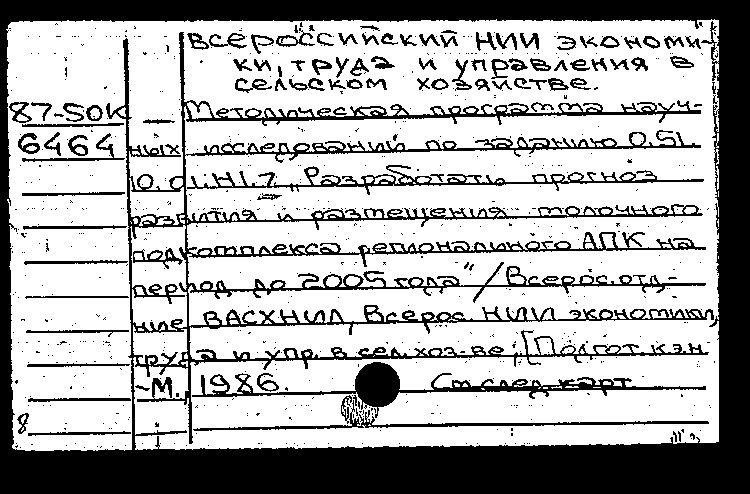 Всероссийский НИИ экономи-
ки, труда и управления в
сельском хозяйстве.
87-50К — Методическая программа науч-
6464 ных исследований по заданию 0.51.
10.01.Н1.7 „Разработать прогноз
развития и размещения молочного
подкомплекса регионального АПК на
период до 2005 года" / Всерос. отд-
ние ВАСХНИЛ, Всерос. НИИ экономики,
труда и упр. в сел. хоз-ве; [Подгот. к.э.н
-М., 1986. См след. карт
8